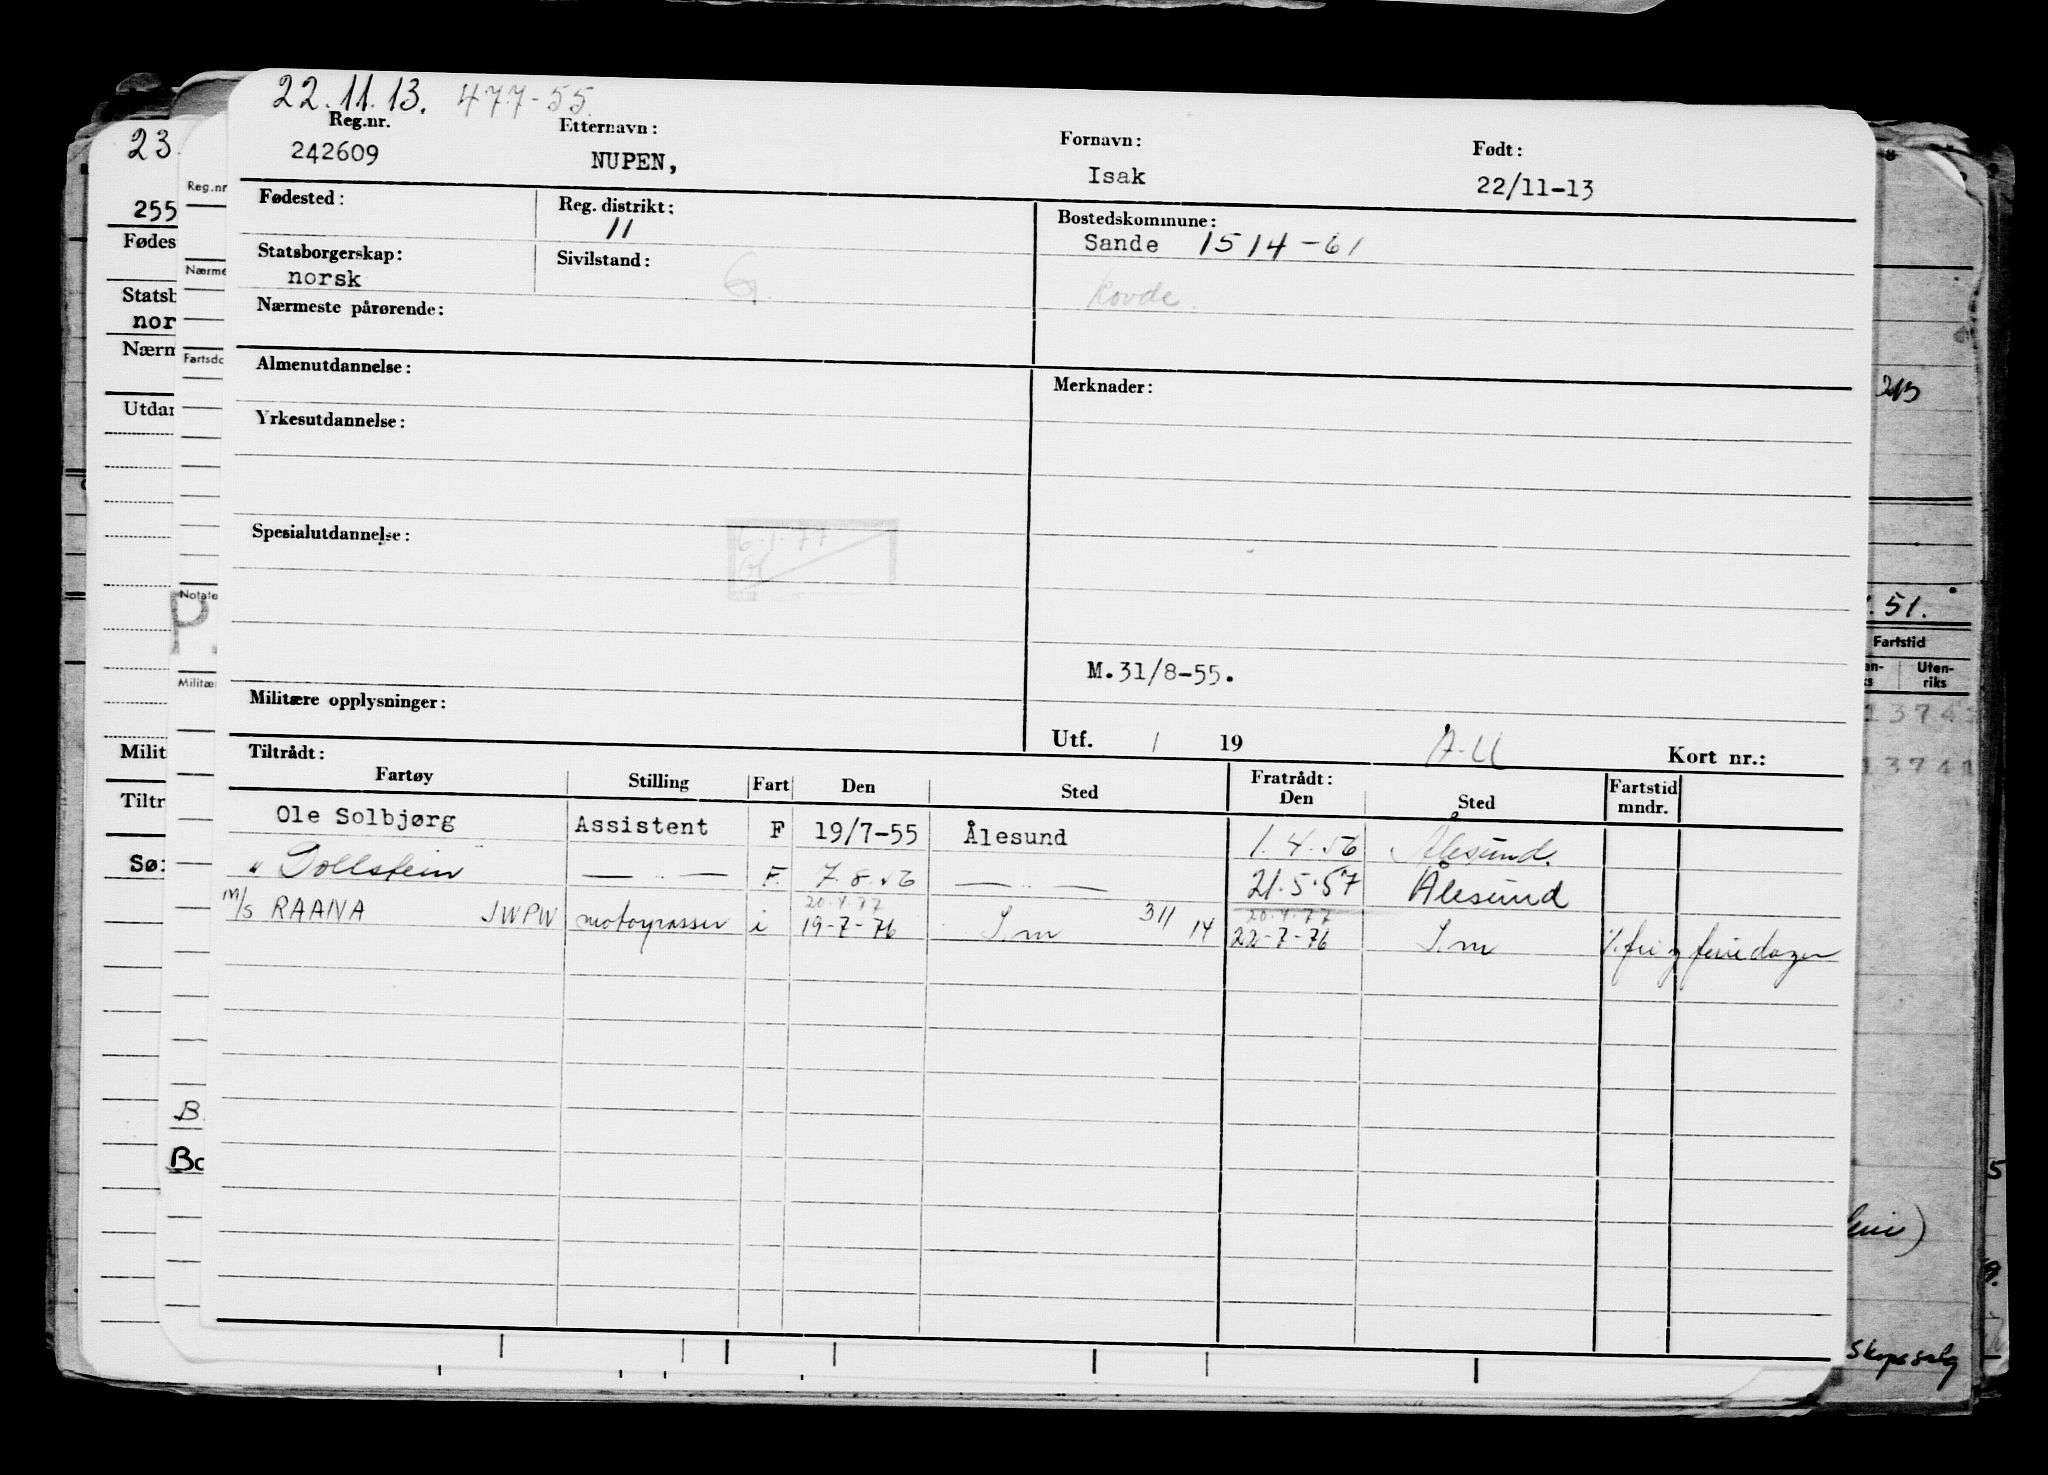 22.11.13. 477-55.
Reg.nr. Etternavn: Fornavn: Født:
242609 NUPEN, Isak 22/11-13
Fødested: Reg. distrikt: Bostedskommune:
11 Sande 1514-61
Statsborgerskap: Sivilstand:
norsk G. Rovde.
Nærmeste pårørende:
Almenutdannelse: Merknader:
Yrkesutdannelse:
Spesialutdannelse:
6.1.77
M.31/8-55.
Militære opplysninger:
Utf. / 19 A-U Kort nr.:
Tiltrådt: Fratrådt:
Fartøy Stilling Fart Den Sted Den Sted Fartstid mndr.
Ole Solbjørg Assistent F 19/7-55 Ålesund 1.4.56 Ålesund.
" Dollstein — " — F. 7.8.56 — " — 21.5.57 Ålesund
20.4.77 20.4.77
M/S RAANA JWPW motorpasser i 19-7-76 S.m 311 14 22-7-76 S.m %. fri og feriedager
23.
Reg.nr
255
Fødes
Nærme
Statsb
nor
Nærm
Fartsdo
Utdan
Notate
P
Militæ
Milit
Tiltr
Sø:
B.
Bo
213
.51.
Fartstid
an-ks Uten-riks
13741
13741
5
9.
Skipssalg